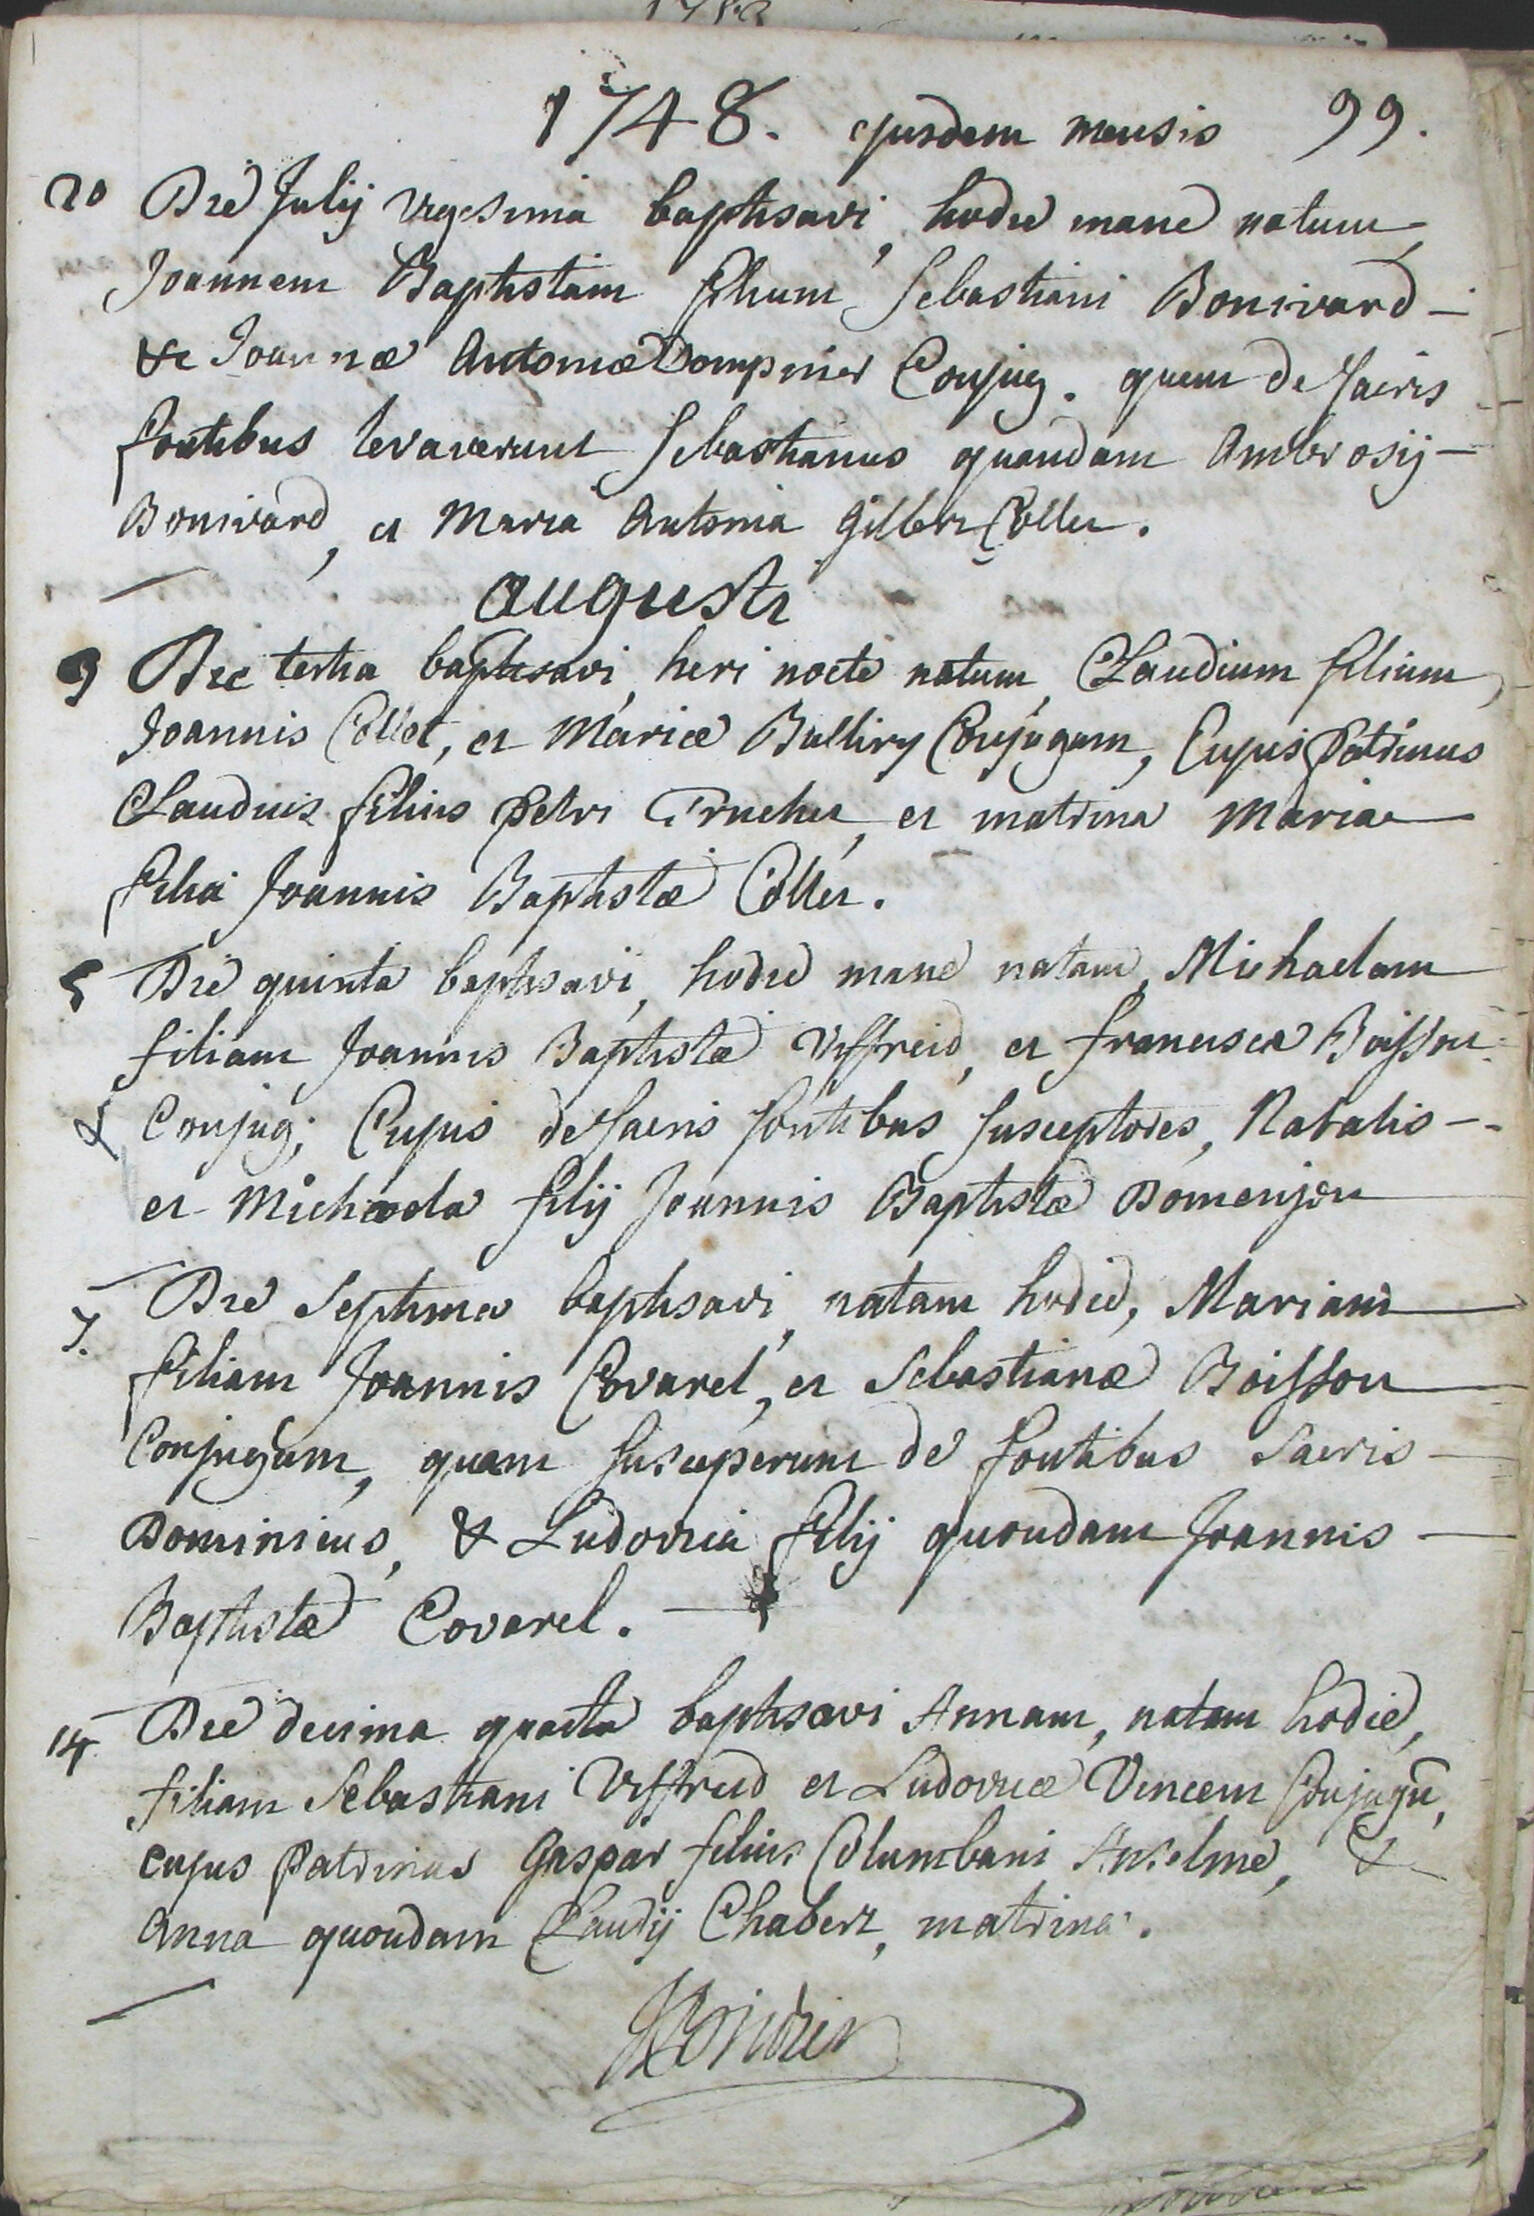 1748. ejusdem mensis 99.
20 Die Julij vigesima baptisavi, hodie mane natum,
Joannem Baptistam filium Sebastiani Bonivard –
& Joannæ Antoniæ Dompnier Conjug. quem de Sacris
fontibus levaverunt Sebastianus quondam Ambrosij –
Bonivard, et Maria Antonia Gilbert Collet.
Augusti
3 Die tertia baptisavi, heri nocte natum, Claudium filium
Joannis Collet, et Mariæ Balliry Conjugum, Cujus Patrinus
Claudius filius Petri Truchet, et matrina Maria
filia Joannis Baptistæ Collet.
5 Die quinta baptisavi, hodie mane natam, Michaelam
filiam Joannis Baptistæ Viffreid, et Franciscæ Boisson
Conjug; Cujus de Sacris fontibus Susceptores, Natalis –
et Michaela filij Joannis Baptistæ Domenjon
7. Die Septima baptisavi, natam hodie, Mariam
filiam Joannis Covarel, et Sebastianæ Boisson
Conjugum, quam Susceperunt de fontibus Sacris –
Dominicus, & Ludovica filij quondam Joannis –
Baptistæ Covarel.
14 Die decima quarta baptisavi Annam, natam hodie,
filiam Sebastiani Viffreid et Ludovicæ Vincent Conjugū,
cujus Patrinus Gaspar filius Columbani Anselme, &
Anna quondam Claudij Chabert, matrina.